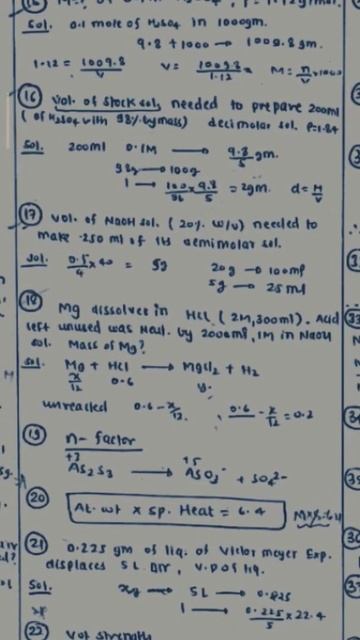 Sol. 0.1 mole of H₂SO₄ in 1000gm.
9.8 + 1000 → 1009.8 gm.
1.12 = 1009.8/V V = 1009.8/1.12 M = n/V × 1000
(16) Vol. of stock sol. needed to prepare 200ml
(of H₂SO₄ with 98% by mass) decimolar sol. ρ=1.84
Sol. 200ml 0.1M → 9.8/5 gm.
98g → 100g
1 → 100/98 × 9.8/5 = 2gm. d = M/V
(17) Vol. of NaOH sol. (20% w/v) needed to
make 250 ml of its semimolar sol.
Sol. 0.5/4 × 40 = 5g 20g → 100ml
5g → 25ml
(18) Mg dissolves in HCl (2M, 300ml). Acid
left unused was neut. by 200ml, 1M in NaOH
sol. Mass of Mg?
Sol. Mg + HCl → MgCl₂ + H₂
x/12 0.6
unreacted 0.6 - x/12 0.6 - x/12 = 0.2
(19) n- factor
+3 +5
As₂S₃ → AsO₃⁻ + SO₄²⁻
(20) At. wt × sp. Heat = 6.4
(21) 0.225 gm of liq. of Victor meyer Exp.
displaces 5L Air, V.D of liq.
Sol. xg → 5L → 0.225
1 → 0.225/5 × 22.4
(22) Vol strength